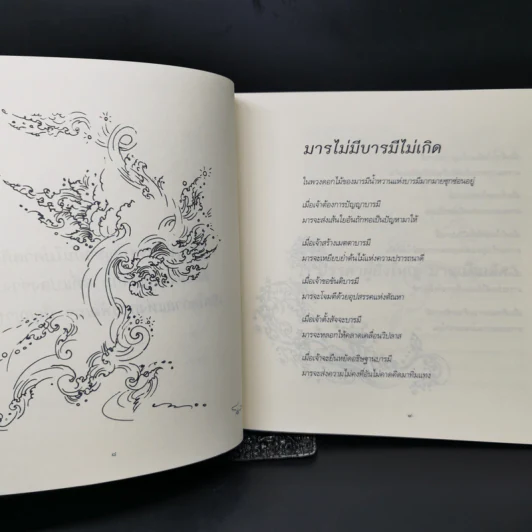 มารไม่มีบารมีไม่เกิด
ในพวงดอกไม้ของมารมีน้ำหวานแห่งบารมีมากมายซุกซ่อนอยู่
เมื่อเจ้าต้องการปัญญาบารมี
มารจะส่งเส้นใยอันถักทอเป็นปัญหามาให้
เมื่อเจ้าสร้างเมตตาบารมี
มารจะเหยียบย่ำต้นไม้แห่งความปรารถนาดี
เมื่อเจ้าขอขันติบารมี
มารจะโจมตีด้วยอุปสรรคแห่งตัณหา
เมื่อเจ้าตั้งสัจจะบารมี
มารจะหลอกให้คลาดเคลื่อนวิปลาส
เมื่อเจ้าจะยืนหยัดอธิษฐานบารมี
มารจะส่งความไม่คงที่อันไม่คาดคิดมาทิ่มแทง